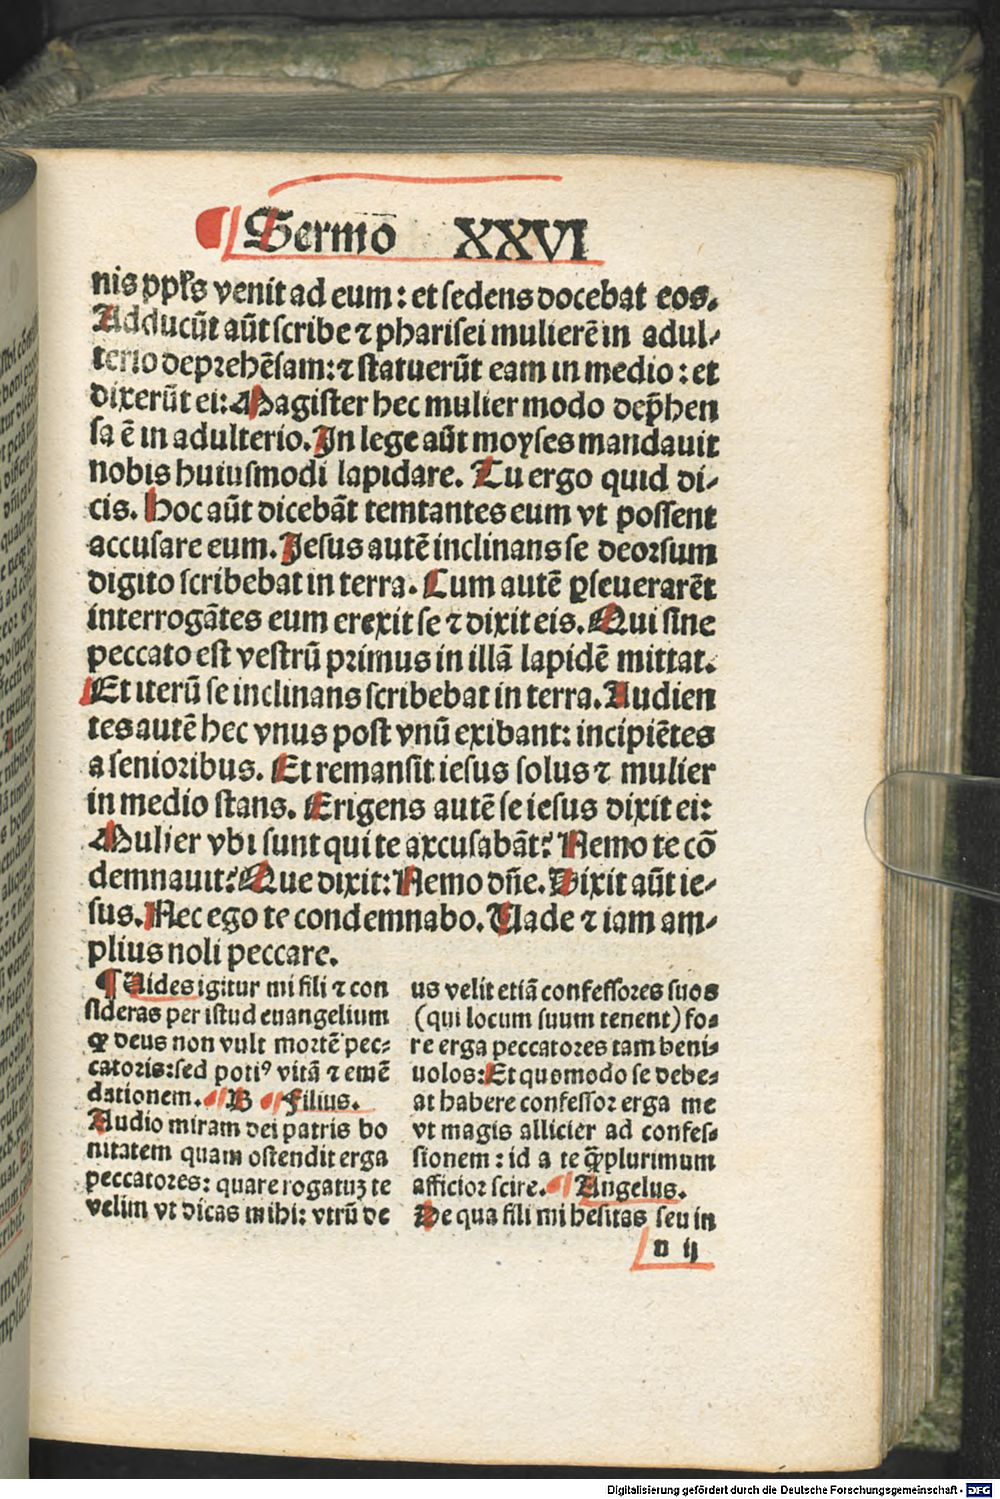 Sermō XXVI
nis ppl's venit ad eum: et sedens docebat eos.
Adducūt aūt scribe ⁊ pharisei mulierē in adul-
terio deprehēsam: ⁊ statuerūt eam in medio: et
dixerūt ei: Magister hec mulier modo dep̄hen
sa ē in adulterio. In lege aūt moyses mandauit
nobis huiusmodi lapidare. Tu ergo quid di-
cis. Hoc aūt dicebāt temtantes eum vt possent
accusare eum. Jesus autē inclinans se deorsum
digito scribebat in terra. Cum autē ꝑseuerarēt
interrogātes eum erexit se ⁊ dixit eis. Qui sine
peccato est vestrū primus in illā lapidē mittat.
Et iterū se inclinans scribebat in terra. Audien
tes autē hec vnus post vnū exibant: incipiētes
a senioribus. Et remansit iesus solus ⁊ mulier
in medio stans. Erigens autē se iesus dixit ei:
Mulier vbi sunt qui te axcusabāt? Nemo te cō
demnauit? Que dixit: Nemo dn̄e. Dixit aūt ie-
sus. Nec ego te condemnabo. Vade ⁊ iam am-
plius noli peccare.
¶ Vides igitur mi fili ⁊ con
sideras per istud euangelium
ꝙ deus non vult mortē pec-
catoris: sed potiꝰ vitā ⁊ emē
dationem. B Filius.
Audio miram dei patris bo
nitatem quam ostendit erga
peccatores: quare rogatuꝫ te
velim vt dicas mihi: vtrū de
us velit etiā confessores suos
(qui locum suum tenent) fo-
re erga peccatores tam beni-
uolos: Et quomodo se debe-
at habere confessor erga me
vt magis allicier ad confes-
sionem: id a te q̄plurimum
afficior scire. Angelus.
De qua fili mi hesitas seu in
n ij
Digitalisierung gefördert durch die Deutsche Forschungsgemeinschaft - DFG